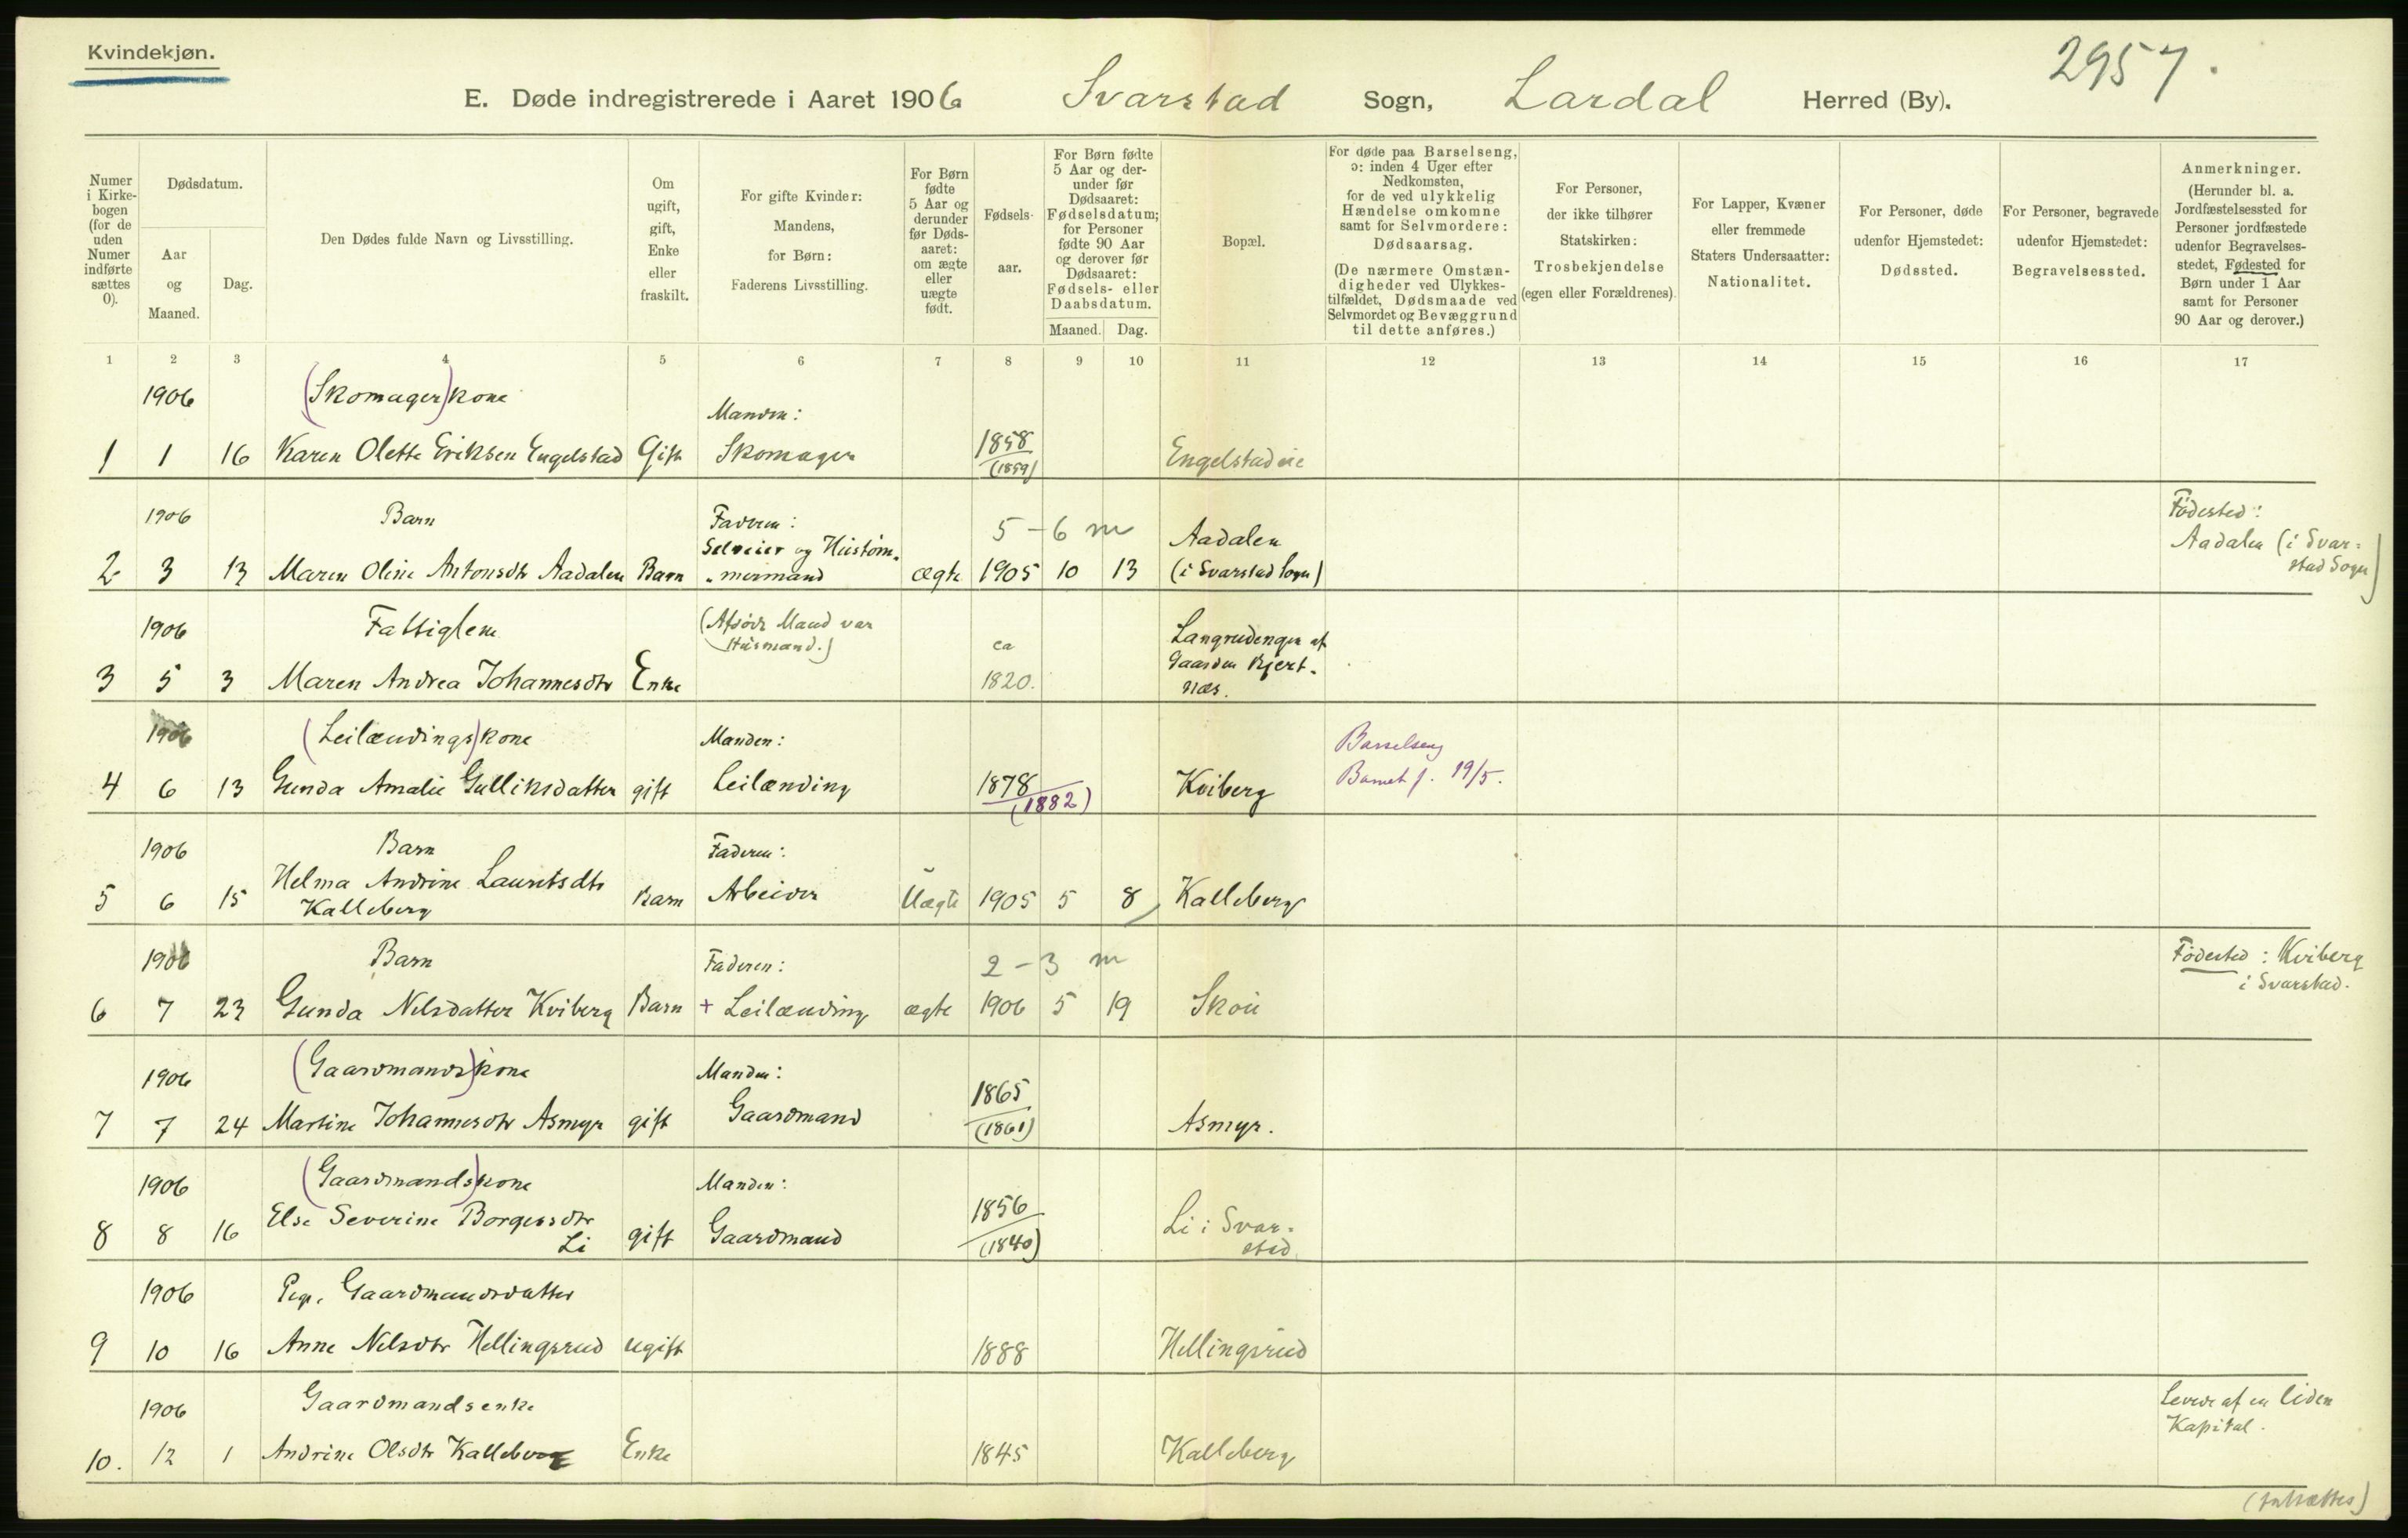 Kvindekjøn.
2957.
E. Døde indregistrerede i Aaret 1906 Svarstad Sogn, Lardal Herred (By).
Numer i Kirkebogen (for de uden Numer indførte sættes 0).
Dødsdatum.
Aar og Maaned.
Dag.
Den Dødes fulde Navn og Livsstilling.
Om ugift, gift, Enke eller fraskilt.
For gifte Kvinder: Mandens, for Børn: Faderens Livsstilling.
For Børn fødte 5 Aar og derunder før Dødsaaret: om ægte eller uægte født.
Fødselsaar.
For Børn fødte 5 Aar og derunder før Dødsaaret: Fødselsdatum; for Personer fødte 90 Aar og derover før Dødsaaret: Fødsels- eller Daabsdatum.
Maaned. Dag.
Bopæl.
For døde paa Barselseng, ɔ: inden 4 Uger efter Nedkomsten, for de ved ulykkelig Hændelse omkomne samt for Selvmordere: Dødsaarsag.
(De nærmere Omstændigheder ved Ulykkestilfældet, Dødsmaade ved Selvmordet og Bevæggrund til dette anføres.)
For Personer, der ikke tilhører Statskirken: Trosbekjendelse (egen eller Forældrenes).
For Lapper, Kvæner eller fremmede Staters Undersaatter: Nationalitet.
For Personer, døde udenfor Hjemstedet: Dødssted.
For Personer, begravede udenfor Hjemstedet: Begravelsessted.
Anmerkninger.
(Herunder bl. a. Jordfæstelsessted for Personer jordfæstede udenfor Begravelsesstedet, Fødested for Børn under 1 Aar samt for Personer 90 Aar og derover.)
1 2 3 4 5 6 7 8 9 10 11 12 13 14 15 16 17
1906 (Skomager)kone Manden:
1 1 16 Karen Olette Eriksen Engelstad Gift Skomager 1858 (1859) Engelstadeie
1906 Barn Faderen: 5-6 m Aadalen Fødested:
Selveier og Hustøm- Aadalen (i Svar-
2 3 13 Maren Oline Antonsdtr Aadalen Barn mermand ægte 1905 10 13 (i Svarstad Sogn) stad Sogn)
1906 Fattiglem (Afdøde Mand var Husmand.) ca Langrudengen af Gaarden Kjert-
3 5 3 Maren Andrea Johannesdtr Enke 1820. næs.
1906 (Leilændings)kone Manden: Barselseng
4 6 13 Gunda Amalie Gulliksdatter gift Leilænding 1878 (1882) Kviberg Barnet f. 19/5.
1906 Barn Faderen:
Helma Andrine Lauritsdtr
5 6 15 Kalleberg Barn Arbeider Uægte 1905 5 8 Kalleberg
1906 Barn Faderen: 2-3 m Fødested: Kviberg
i Svarstad.
6 7 23 Gunda Nilsdatter Kviberg Barn + Leilænding ægte 1906 5 19 Skoli
1906 (Gaardmands)kone Manden:
7 7 24 Martine Johannesdtr Asmyr gift Gaardmand 1865 (1861) Asmyr.
1906 (Gaardmands)kone Manden:
Else Severine Borgersdtr
8 8 16 Li gift Gaardmand 1856 (1840) Li i Svarstad
1906 Pige, Gaardmandsdatter
9 10 16 Anne Nilsdtr Hellingsrud ugift 1888 Hellingsrud
1906 Gaardmandsenke Levede af en liden
Kapital.
10. 12 1 Andrine Olsdtr Kalleberg Enke 1845 Kalleberg
(fortsættes)